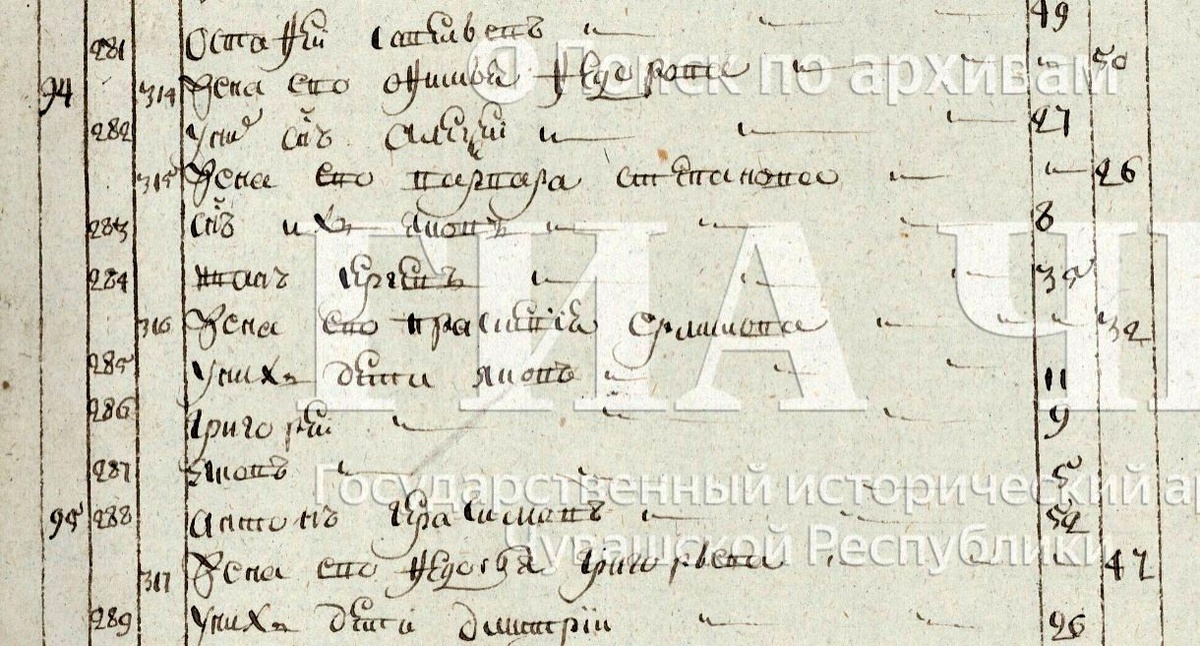 281 Остафей Савельевъ 49
94 314 Жена ево Офимья Федорова 50
282 У нихъ снъ Алексей 27
315 Жена ево Варвара Степанова 26
283 Снъ ихъ Яковъ 8
284 Сергеевъ 35
316 Жена ево Прасковья 32
285 У нихъ дети Яковъ 11
286 Григорей 9
287 Яковъ 5
95 288 Антонъ Герасимовъ 52
317 Жена ево Федосья Григорьева 47
289 У нихъ дети Димитрій 26
Поиск по архивам
ГИА Ч
Государственный исторический а
Чувашской Республики